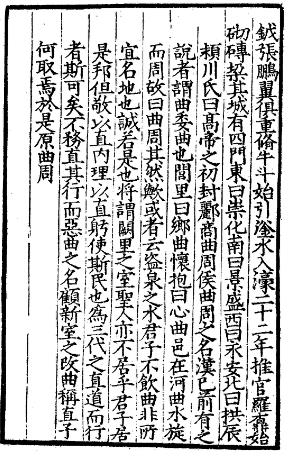 鉞張鵬翼俱重脩牛斗始引滏水入濠二十二年推官羅森始
砌磚㙮其城有四門東曰崇化南曰景盛西曰永安北曰拱辰
穎川氏曰髙帝之初封酈商曲周侯曲周之名漢已前有之
說者謂曲委曲也閭里曰鄉曲懷抱曰心曲邑在河曲水旋
而周故曰曲周其然歟或者云盗泉之水君子不飲曲非所
宜名地也誠若是也将謂闕里之室聖人亦不居乎君子居
是邦但敬以直内理以直躬使斯民也為三代之直道而行
者斯可矣不務直其行而惡曲之名顧新室之改曲稱直子
何取焉於是原曲周